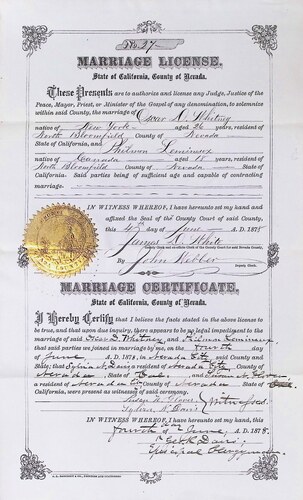 No. 27
MARRIAGE LICENSE.
State of California, County of Nevada.
These Presents are to authorize and license any Judge, Justice of the
Peace, Mayor, Priest, or Minister of the Gospel of any denomination, to solemnize
within said County, the marriage of Oscar D. Whitney
native of New York aged 26 years, resident of
North Bloomfield County of Nevada
State of California, and Philmon Lemineux
native of Canada aged 18 years, resident of
North Bloomfield County of Nevada
State. Said parties being of sufficient age and capable of contracting
marriage.
IN WITNESS WHEREOF, I have hereunto set my hand and
affixed the Seal of the County Court of said County,
this 4th day of June A.D. 1878
James D. White
County Clerk and ex-officio Clerk of the County Court for said Nevada County.
By John Webber
Deputy Clerk.
MARRIAGE CERTIFICATE.
State of California, County of Nevada.
I Hereby Certify that I believe the facts stated in the above license to
be true, and that upon due inquiry, there appears to be no legal impediment to the
marriage of said Oscar D. Whitney, and Philmon Lemineux
that said parties were joined in marriage by me, on the Fourth day
of June, A.D. 1878, in Nevada City said County and
State; that Sylvia N. Davis a resident of Nevada City,
Nevada State of Cal. and
a resident of Nevada County of Nevada State of
were present as witnesses of said ceremony.
Glover
Sylvia N. Davis
Witnesses.
IN WITNESS WHEREOF, I have hereunto set my hand, this
Fourth day of June, A.D. 1878.
Seth Davis,
Episcopal Clergyman